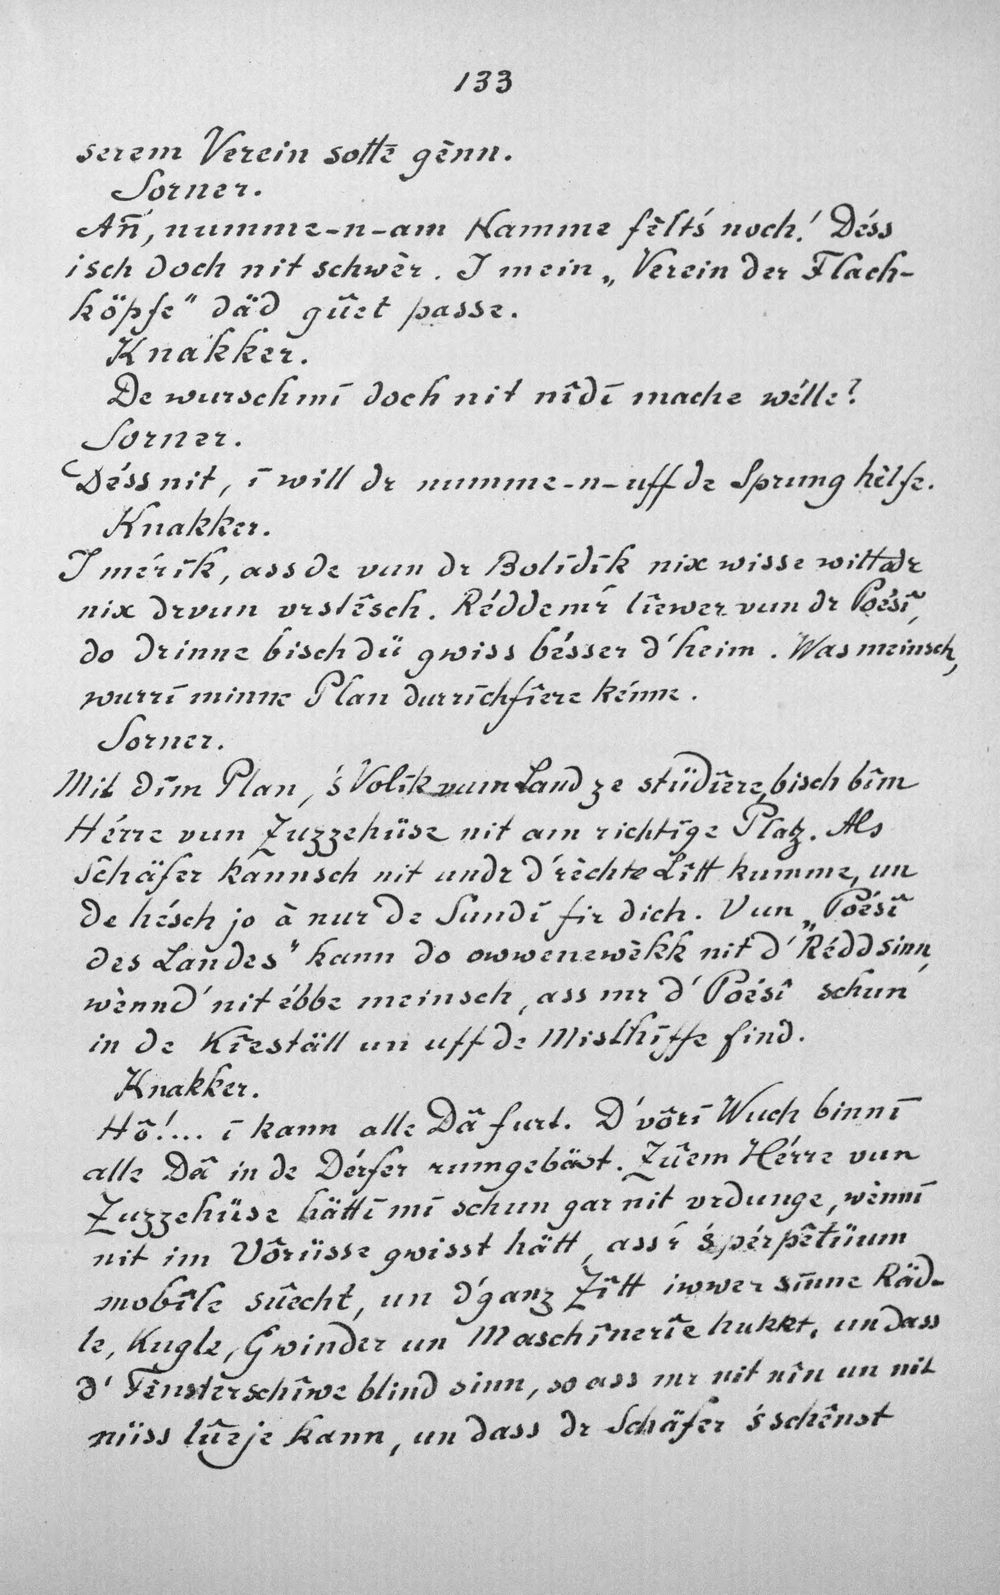 133
serem Verein sottē gènn.
Sorner.
An̄, numme-n-am Namme fèlt's noch! Déss
isch doch nit schwèr. I mein „Verein der Flach-
köpfe" däd gûet passe.
Knakker.
De wurschmī doch nit nîdī mache wélle?
Sorner.
Déss nit, ī will dr numme-n-uff de Sprung hèlfe.
Knakker.
I mérīk, ass de vun dr Bolidik nix wisse witt odr
nix drvun vrstêsch. Rédde mr lîewer vun dr Poésî,
do drinne bisch dü gwiss bésser d'heim. Was meinsch,
wurrī minne Plan durrichfîere kénne.
Sorner.
Mit dîm Plan, 's Volīk vum Land ze stüdîere, bisch bîm
Hérre vun Zuzzehüse nit am richtīge Platz. Als
Schäfer kannsch nit undr d'rèchte Lîtt kumme, un
de hésch jo à nur de Sundī fir dich. Vun „Poésī
des Landes" kann do owwenewèkk nit d'Rédd sinn,
wènnd' nit ébbe meinsch, ass mr d'Poésî schun
in de Kîeställ un uff de Misthîffe find.
Knakker.
Hô!... ī kann alle Dâ furt. D'vôrī Wuch binnī
alle Dâ in de Dérfer rumgebäst. Zûem Hérre vun
Zuzzehüse hättī mī schun gar nit vrdunge, wènnī
nit im Vôrüsse gwisst hätt, ass'r 's pérpêtüum
mobîle sûecht, un d'ganz Zîtt iwwer sinne Räd-
le, Kugle, Gwinder un Maschînerîe hukkt, un dass
d'Fènsterschîwe blind sinn, so ass mr nit nîn un nit
nüss lûeje kann, un dass dr Schäfer 's schênst